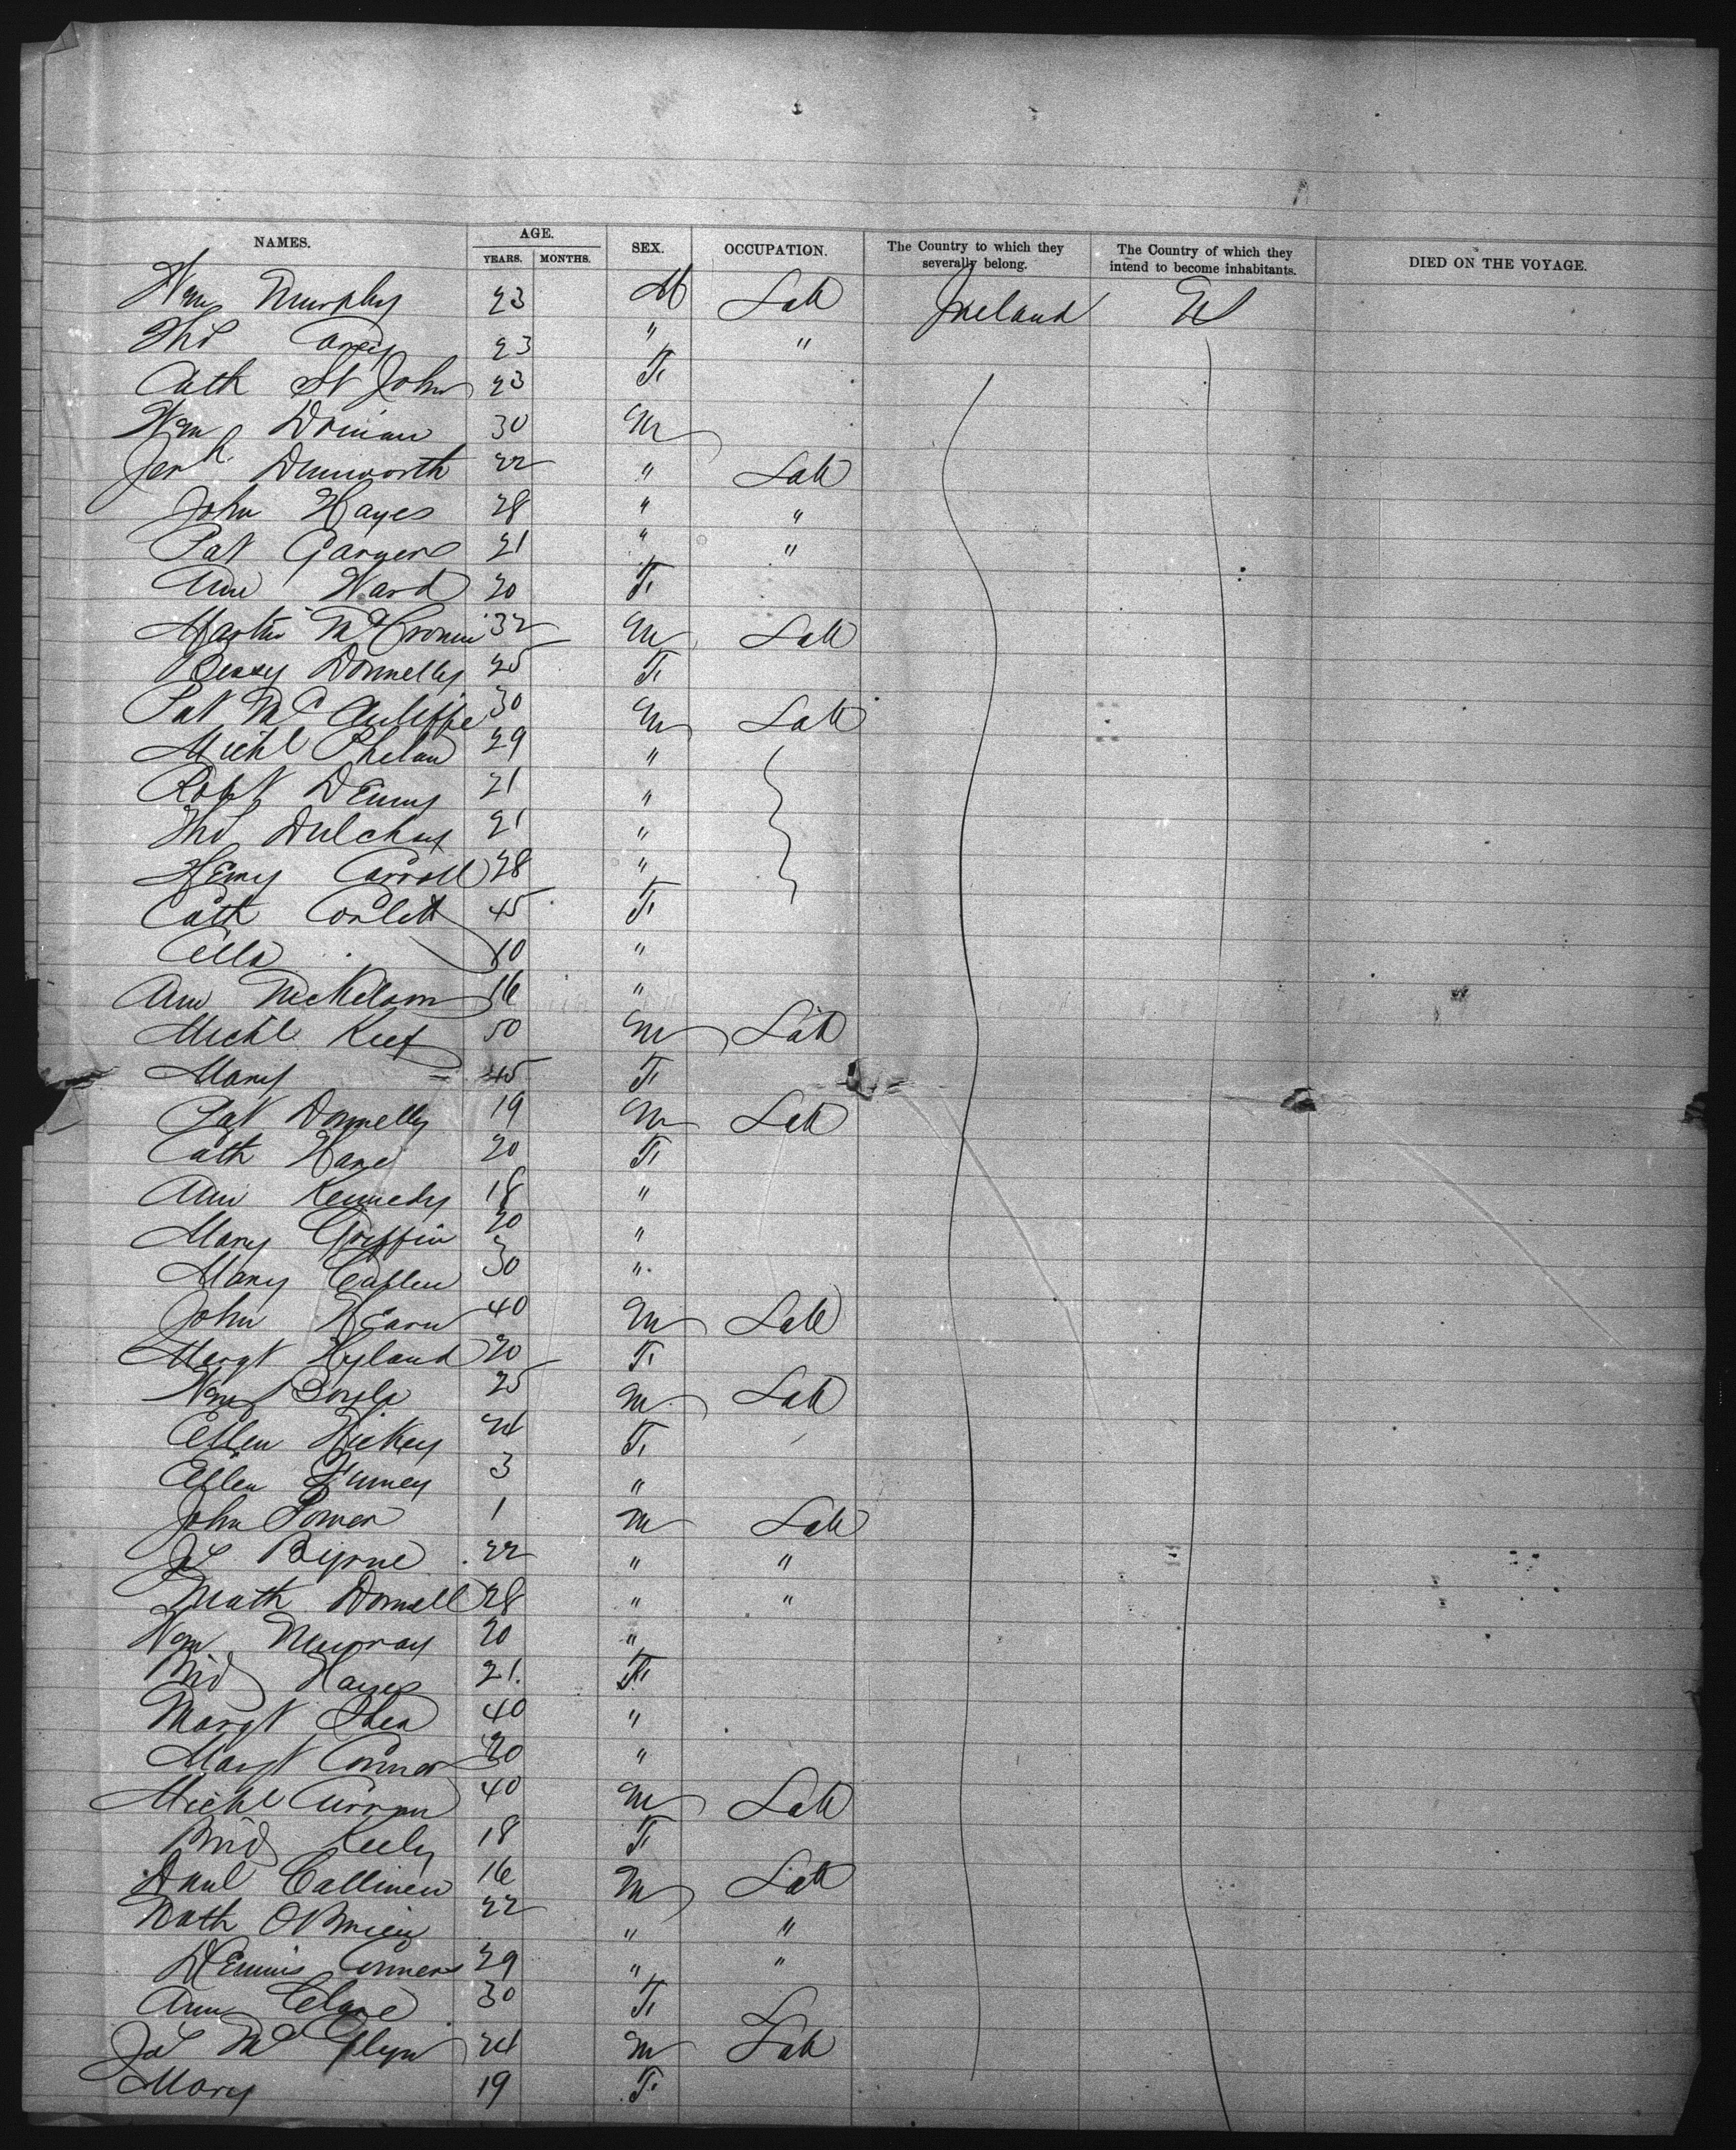 NAMES. AGE. YEARS. MONTHS. SEX. OCCUPATION. The Country to which they severally belong. The Country of which they intend to become inhabitants. DIED ON THE VOYAGE.
Wm Murphy 23 M Lab Ireland US
Thos Carey 23 " "
Cath St John 23 F
Wm Drinan 30 M
Jerh Dunworth 22 " Lab
John Hayes 28 " "
Pat Garner 21 " "
Ann Ward 20 F
Martin McCronin 32 M Lab
Bessy Donnelly 25 F
Pat McAuliffe 30 M Lab
Michl Phelan 29 "
Robt Denny 21 "
Thos 21 "
Henry Carroll 28 "
Cath Corlett 45 F
Ella 10 "
Ann 16 "
Michl Keef 50 M Lab
Mary = 45 F
Pat Donnelly 19 M Lab
Cath Hane 20 F
Ann Kennedy 18 "
Mary Griffin 20 "
Mary Cullen 30 "
John Hearn 40 M Lab
Margt Hyland 20 F
Wm Boyle 25 M Lab
Ellen Hickey 24 F
Ellen 3 "
John Power 1 M Lab
Jas Byrne 22 " "
Math Donnell 28 " "
Wm Murray 20 "
Brid Hayes 21 F
Margt Shea 40 "
Margt Connor 20 "
Michl Curran 40 M Lab
Brid Keely 18 F
Danl Callinen 16 M Lab
Math OBrien 22 " "
Dennis Conners 29 " "
Ann Clare 30 F
Jas McGlyn 24 M Lab
Mary 19 F